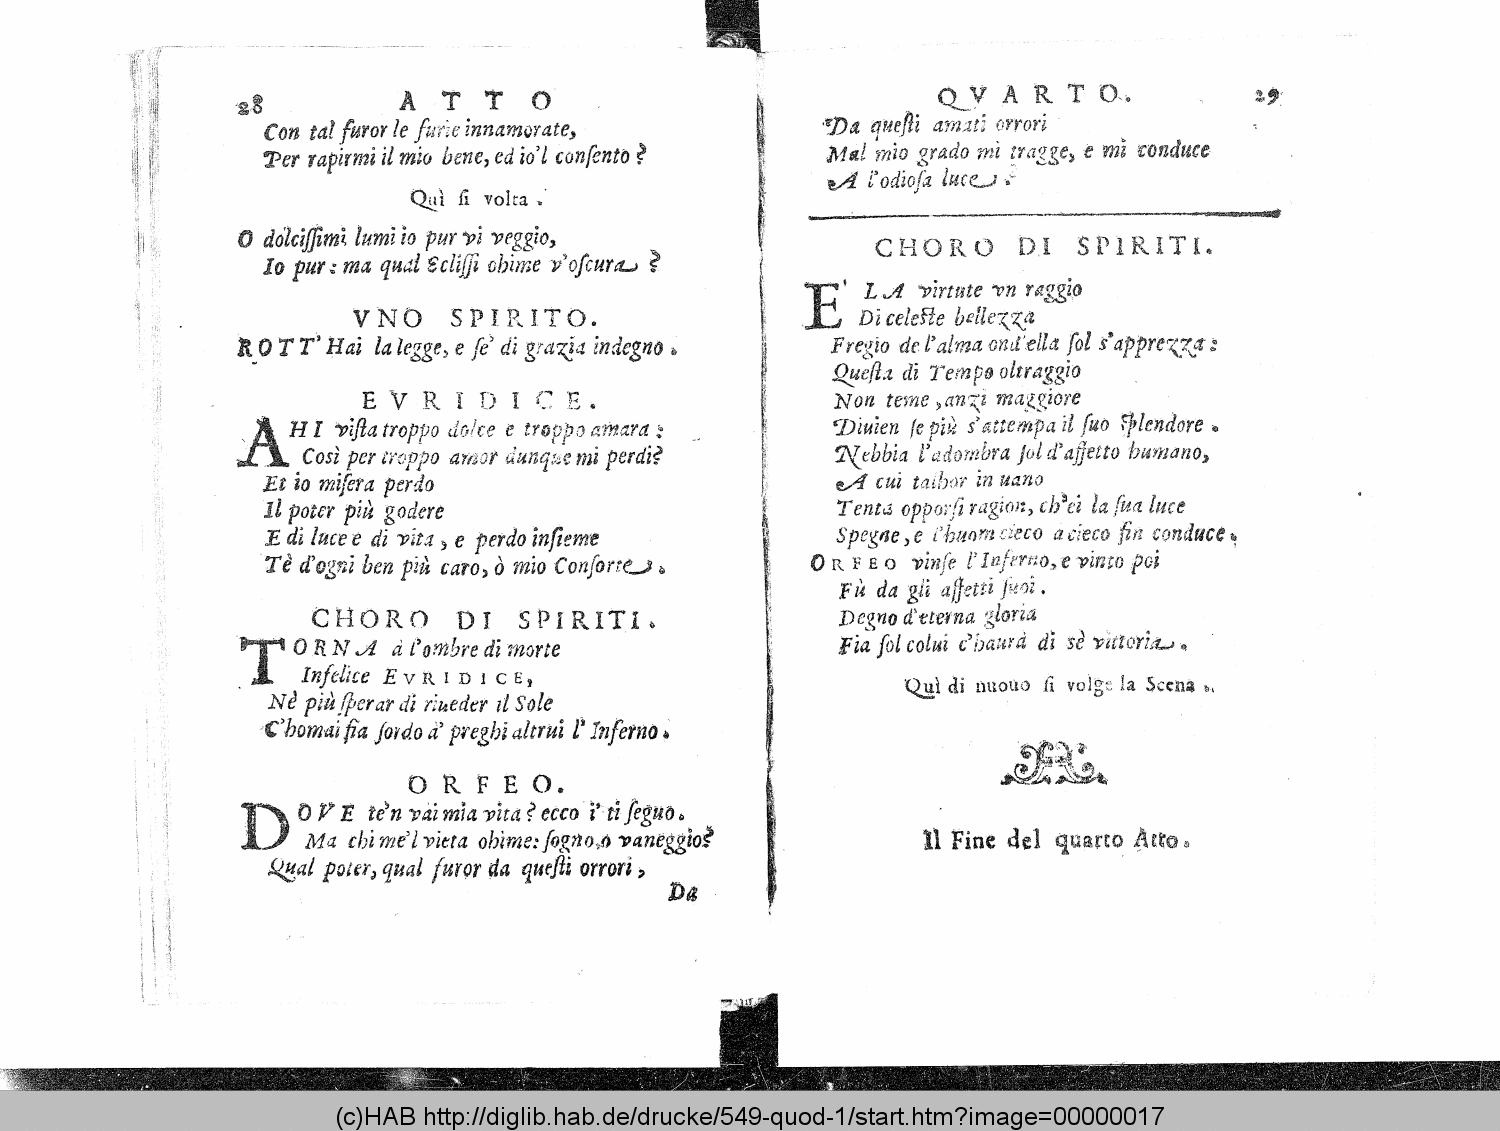 28 ATTO
Con tal furor le furie innamorate,
Per rapirmi il mio bene, ed io'l consento?
Quì si volta.
O dolcissimi lumi io pur vi veggio,
Io pur: ma qual Eclissi ohime v'oscura?
VNO SPIRITO.
ROTT' Hai la legge, e se' di grazia indegno.
EVRIDICE.
AHI vista troppo dolce e troppo amara:
Così per troppo amor dunque mi perdi?
Et io misera perdo
Il poter più godere
E di luce e di vita, e perdo insieme
Tè d'ogni ben più caro, ò mio Consorte.
CHORO DI SPIRITI.
TORNA à l'ombre di morte
Infelice EVRIDICE,
Nè più sperar di riueder il Sole
C'homai fia sordo a' preghi altrui l'Inferno.
ORFEO.
DOVE te'n vai mia vita? ecco i' ti seguo.
Ma chi me'l vieta ohime: sogno, o vaneggio?
Qual poter, qual furor da questi orrori,
Da
QVARTO. 29
Da questi amati orrori
Mal mio grado mi tragge, e mi conduce
A l'odiosa luce?
CHORO DI SPIRITI.
E' LA virtute vn raggio
Di celeste bellezza
Fregio de l'alma ond'ella sol s'apprezza:
Questa di Tempo oltraggio
Non teme, anzi maggiore
Diuien se più s'attempa il suo splendore.
Nebbia l'adombra sol d'affetto humano,
A cui talhor in uano
Tenta opporsi ragion, ch'ei la sua luce
Spegne, e l'huom cieco a cieco fin conduce.
ORFEO vinse l'Inferno, e vinto poi
Fù da gli affetti suoi.
Degno d'eterna gloria
Fia sol colui c'haurà di sè vittoria.
Quì di nuouo si volge la Scena.
Il Fine del quarto Atto.
(c)HAB http://diglib.hab.de/drucke/549-quod-1/start.htm?image=00000017